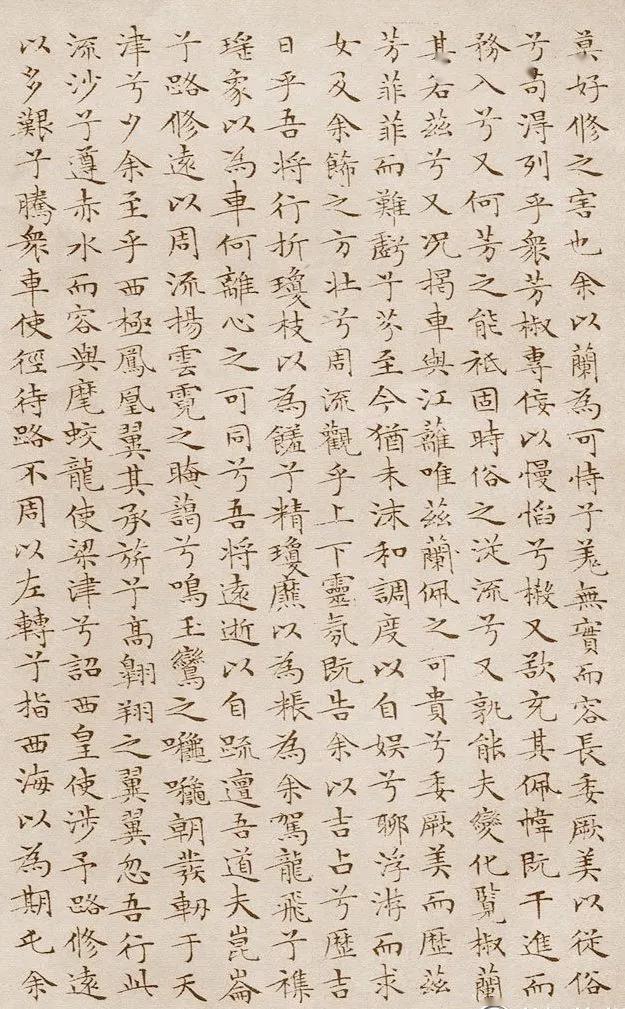 莫好修之害也余以蘭為可恃兮羌無實而容長委厥美以從俗
兮苟得列乎衆芳椒專佞以慢慆兮樧又欲充其佩幃既干進而
務入兮又何芳之能祗固時俗之從流兮又孰能夫變化覽椒蘭
其若茲兮又況揭車與江蘺唯茲蘭佩之可貴兮委厥美而歷茲
芳菲菲而難虧兮芬至今猶未沫和調度以自娛兮聊浮游而求
女及余飾之方壯兮周流觀乎上下靈氛既告余以吉占兮歷吉
日乎吾將行折瓊枝以為饈兮精瓊爢以為粻為余駕飛龍兮襍
瑤象以為車何離心之可同兮吾將遠逝以自疏邅吾道夫崑崙
兮路修遠以周流揚雲霓之晻藹兮鳴玉鸞之噰噰朝發軔于天
津兮夕余至乎西極鳳凰翼其承旂兮高翺翔之翼翼忽吾行此
流沙兮遵赤水而容與麾蛟龍使梁津兮詔西皇使涉予路修遠
以多艱兮騰衆車使徑待路不周以左轉兮指西海以為期屯余